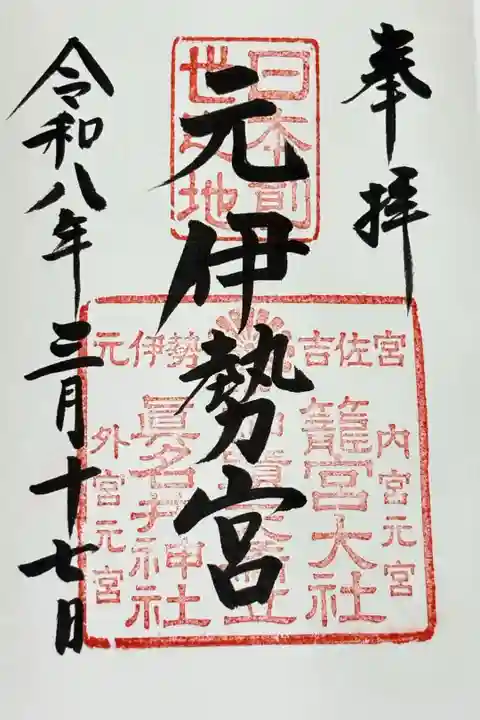 奉拝
元伊勢宮
令和八年三月十七日
日本創
世之地
元伊勢 吉佐宮
内宮元宮
籠宮大社
眞名井神社
外宮元宮